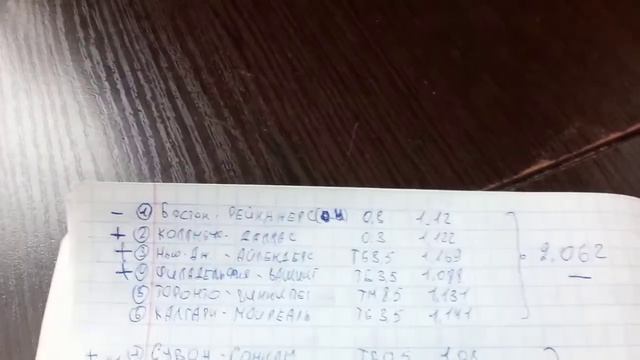 - ① БОСТОН - РЕЙНДЖЕРС(ОИ) 0.3 1,12
+ ② КОЛАМБУС - ДАЛЛАС 0.3 1,122
+ ③ НЬЮ-ДЖ. - АЙЛЕНДЕРС ТБ3.5
+ ④ ФИЛАДЕЛЬФИЯ - ВАШИНГ ТБ3,5 1,088
⑤ ТОРОНТО - ВИННИПЕГ ТМ8.5 1,131
⑥ КАЛГАРИ - МОНРЕАЛЬ ТБ3.5 1,141
2.062